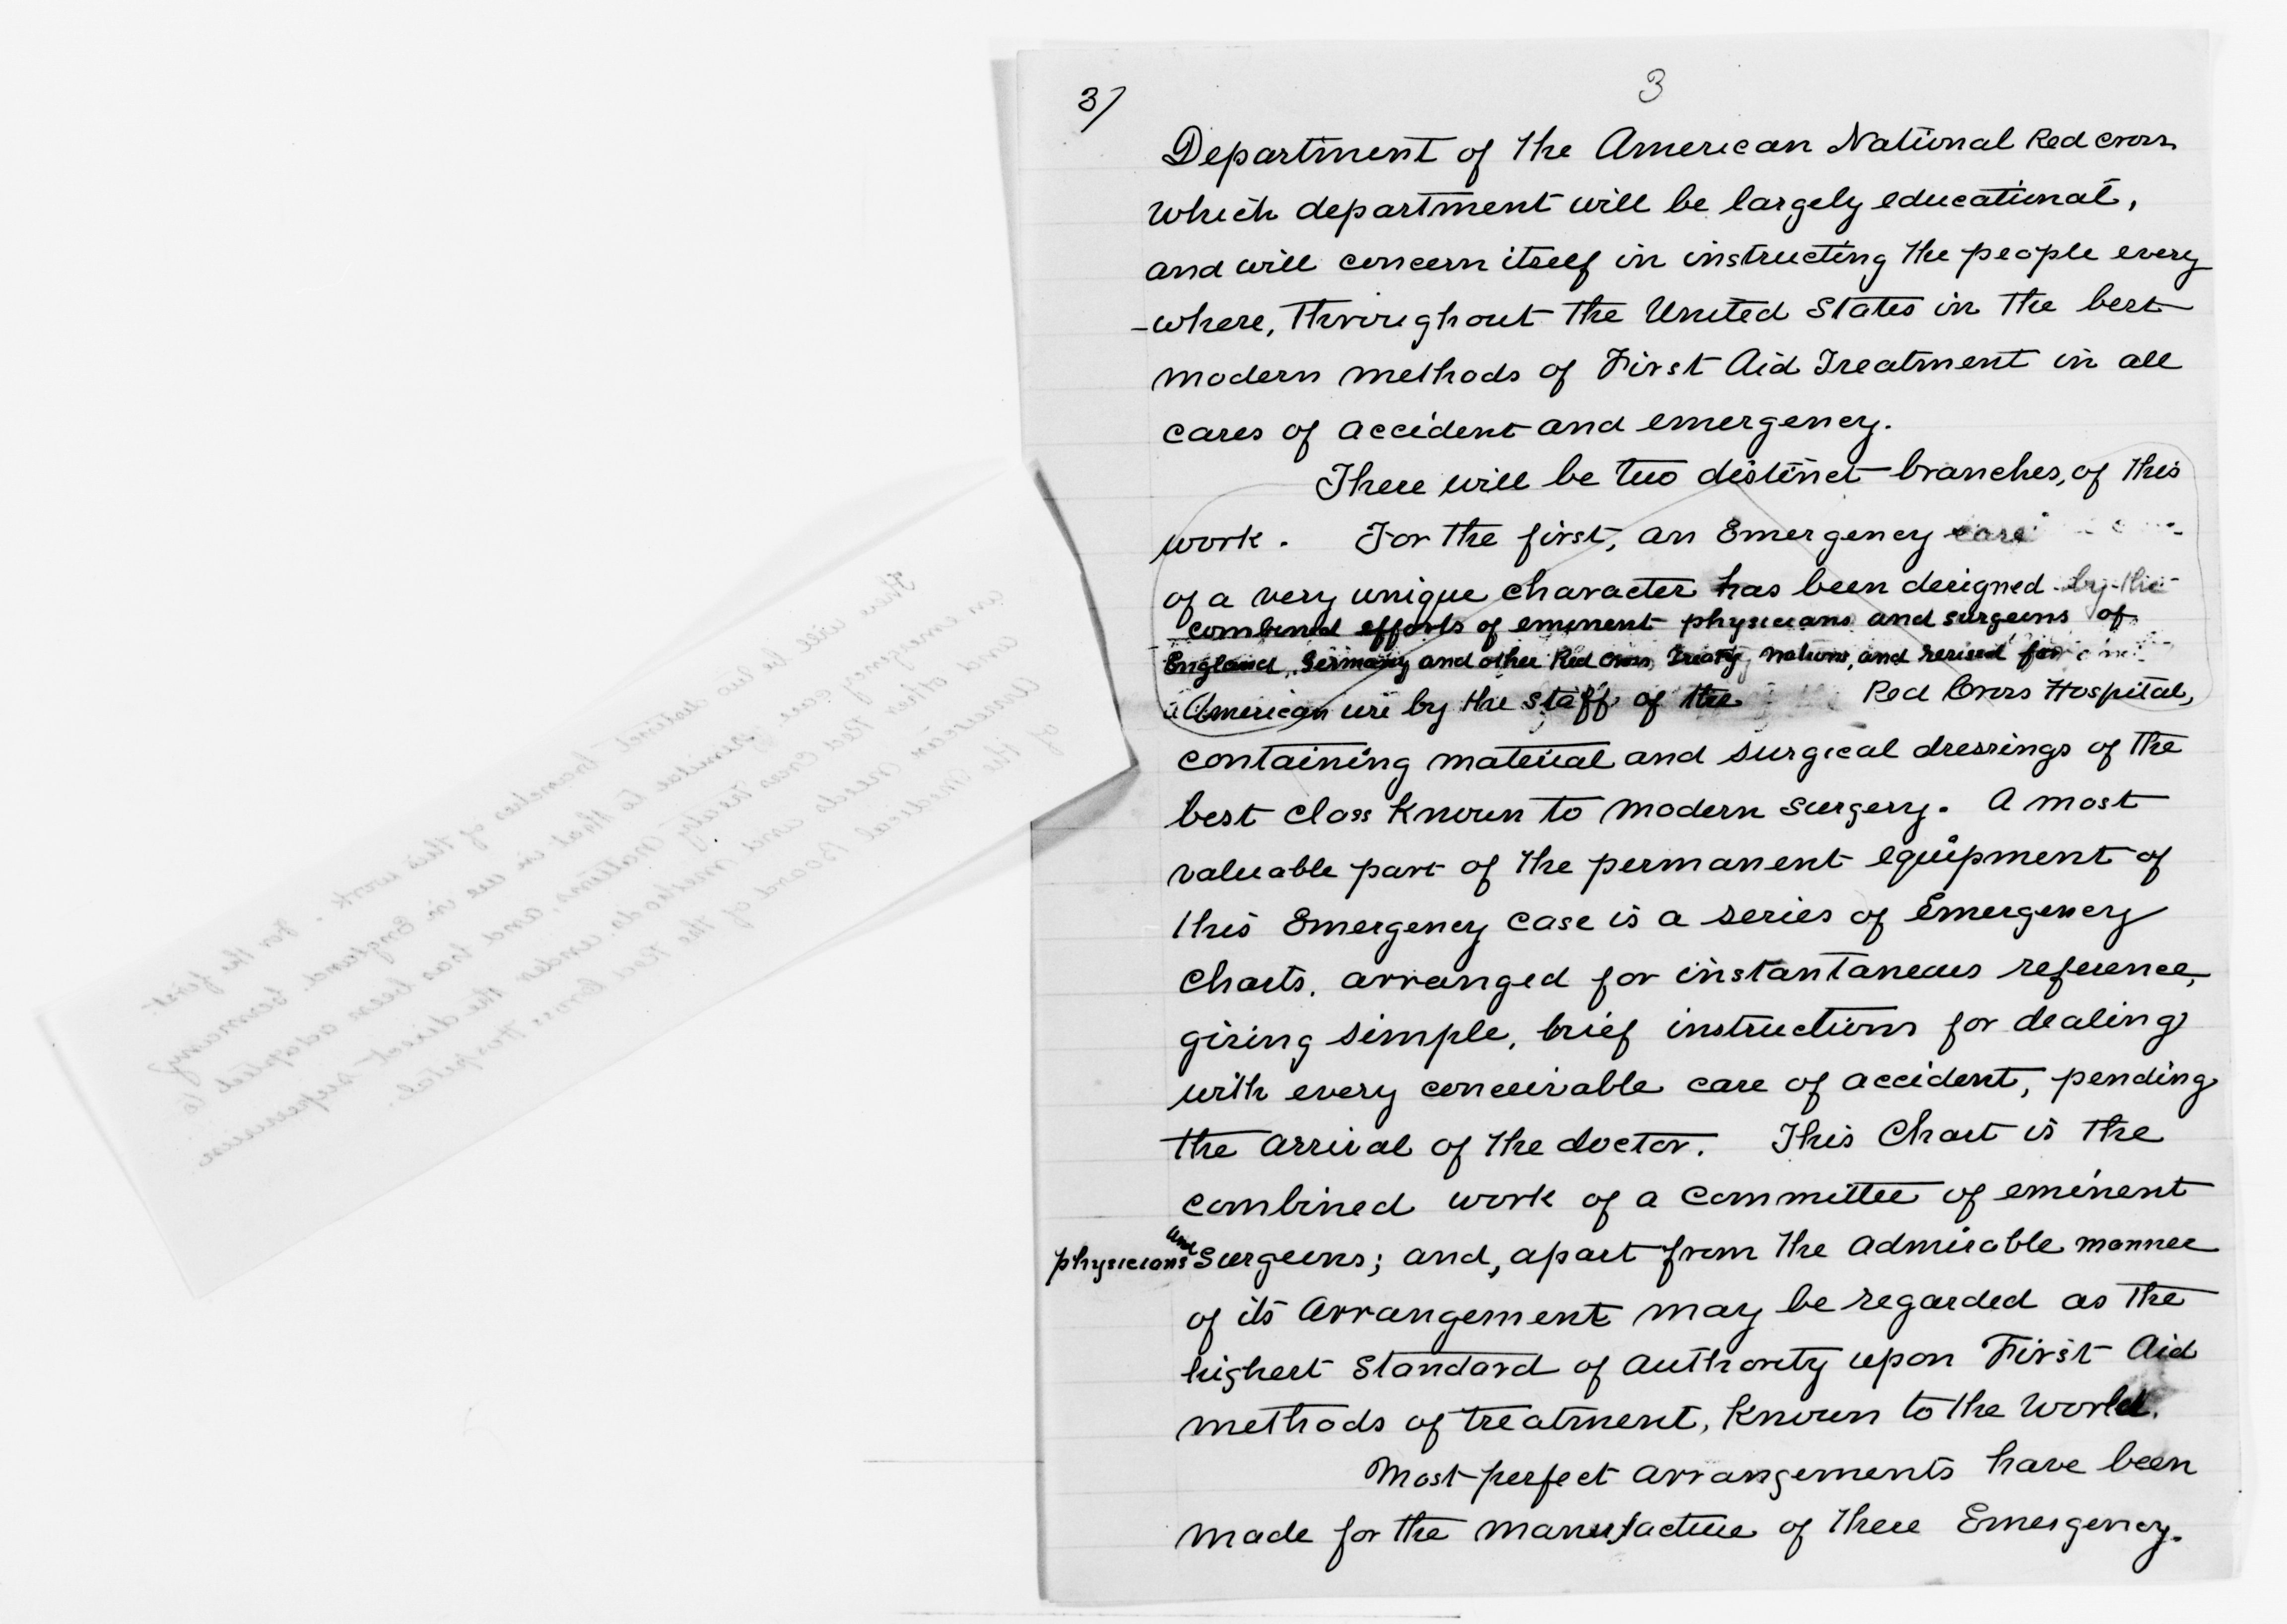 3/
3
Department of the American National Red Cross
which department will be largely educational,
and will concern itself in instructing the people every
-where, throughout the United States in the best
modern methods of First Aid Treatment in all
cases of accident and emergency.
There will be two distinct branches, of this
work. For the first, an Emergency case
of a very unique character has been designed by the
combined efforts of eminent physicians and surgeons of
England, Germany and other Red Cross Treaty nations, and revised for
American use by the staff of the Red Cross Hospital,
containing material and surgical dressings of the
best class known to modern surgery. A most
valuable part of the permanent equipment of
this Emergency case is a series of Emergency
Charts, arranged for instantaneous reference,
giving simple, brief instructions for dealing
with every conceivable case of accident, pending
the arrival of the doctor. This Chart is the
combined work of a committee of eminent
physicians and Surgeons; and, apart from the admirable manner
of its arrangement may be regarded as the
highest standard of authority upon First Aid
methods of treatment, known to the world.
Most perfect arrangements have been
made for the manufacture of these Emergency.
There will be two distinct branches of this work. For the first
an emergency case similar to that in use in England, Germany
and other Red Cross Treaty Nations, and has been adapted to
American needs and methods under the direct supervision
of the Medical Board of the Red Cross Hospital.